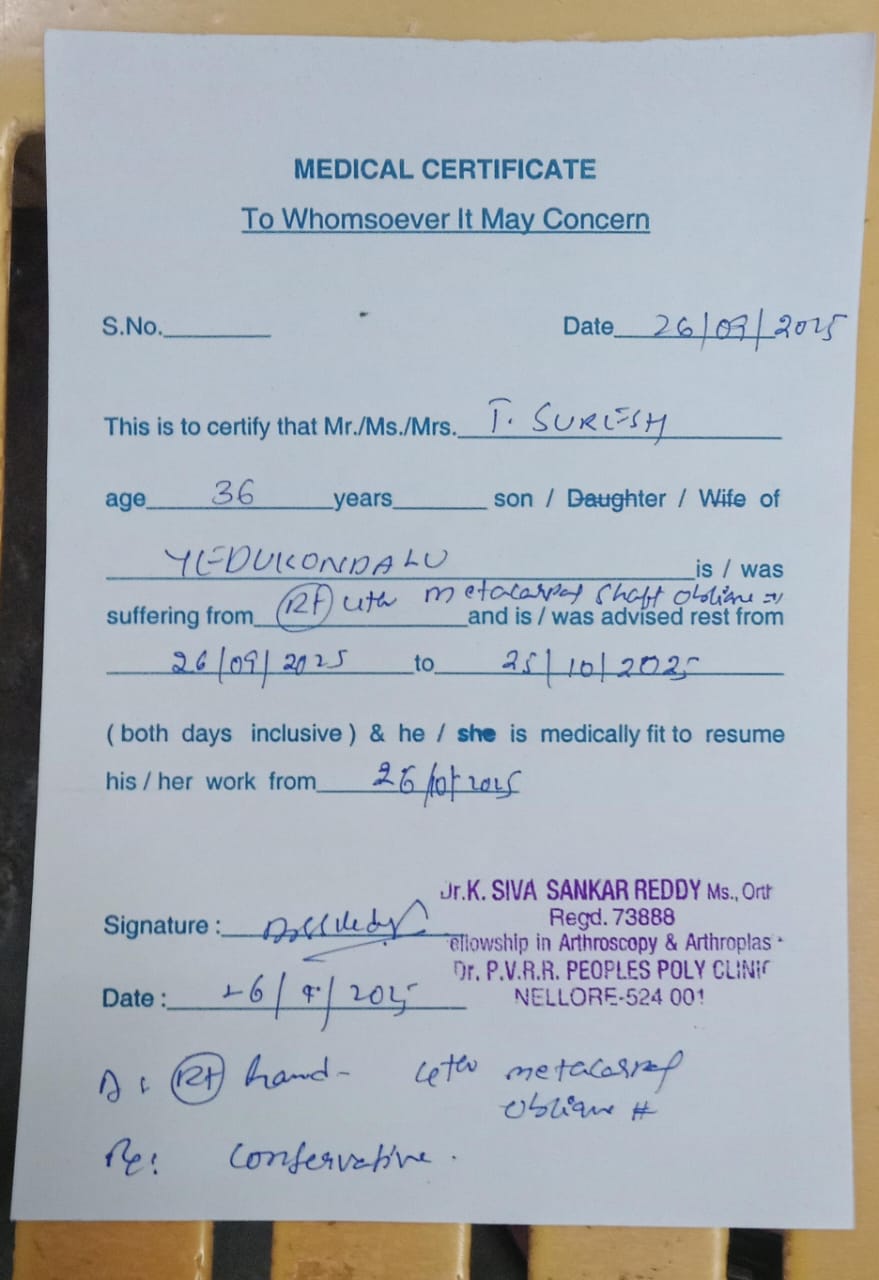 MEDICAL CERTIFICATE
To Whomsoever It May Concern
S.No. Date 26/09/2025
This is to certify that Mr./Ms./Mrs. T. SURESH
age 36 years son / Daughter / Wife of
YEDUKONDALU is / was
suffering from Rt 4th metacarpal shaft oblique #
and is / was advised rest from
26/09/2025 to 25/10/2025
( both days inclusive ) & he / she is medically fit to resume
his / her work from 26/10/2025
Dr.K. SIVA SANKAR REDDY Ms., Orth
Signature :
Regd. 73888
ellowship in Arthroscopy & Arthroplas
Dr. P.V.R.R. PEOPLES POLY CLINIC
Date : 26/9/2025
NELLORE-524 001
D: Rt hand - 4th metacarpal
oblique #
Rx: conservative.